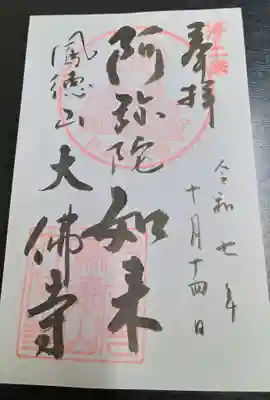 奉拝
令和七年
十月十四日
阿弥陀如来
鳳徳山
大佛寺